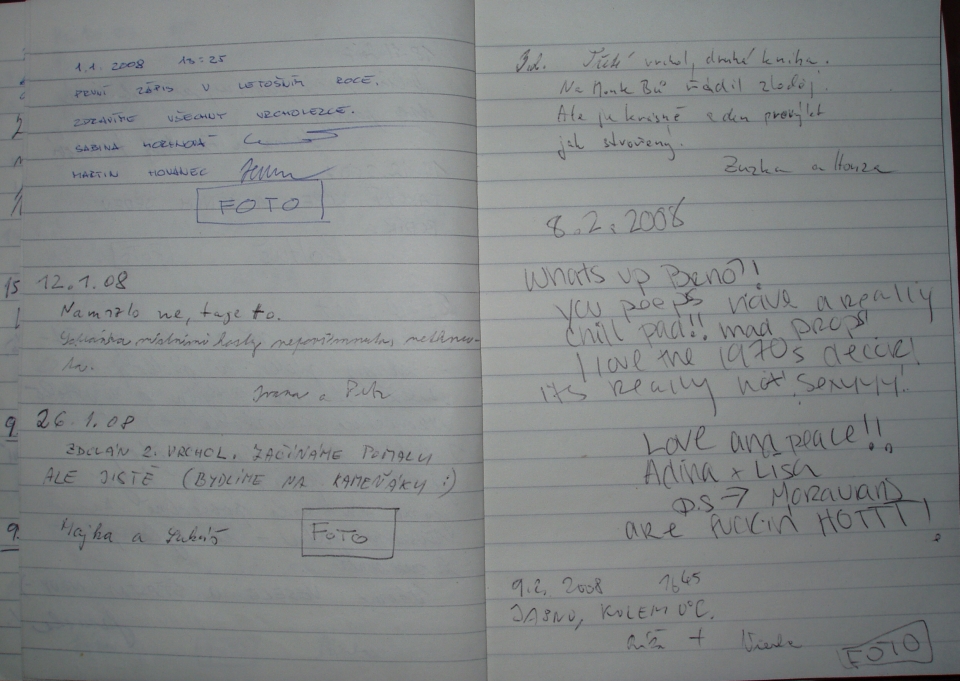 1.1. 2008 16:25
PRVNÍ ZÁPIS V LETOŠNÍM ROCE.
ZDRAVÍME VŠECHNY VRCHOLEZCE.
SABINA
MARTIN HOVANEC
FOTO
12.1.08
Namrzlo ne, taje to.
la.
Ivana a Petr
26.1.08
ZDOLÁN 2. VRCHOL. ZAČÍNÁME POMALU
ALE JISTĚ (BYDLÍME NA KAMEŇÁKU :)
Hajka a Lukáš
FOTO
15
9
9.
3.2. Třetí vrchol, druhá kniha.
Na Monte Bú řádil zloděj.
Ale je krásně a den prožít
jak stvořený.
Zuzka a Honza
8.2.2008
Whats up Brno?!
you peeps have a really
chill pad!! mad props
I love the 1970s decor!
its really hot sexyyy!
Love and peace!!
Adina + Lisa
P.S → Moravians
are fuckin HOTTT!
9.2. 2008 1645
JASNO, KOLEM 0°C.
+
FOTO